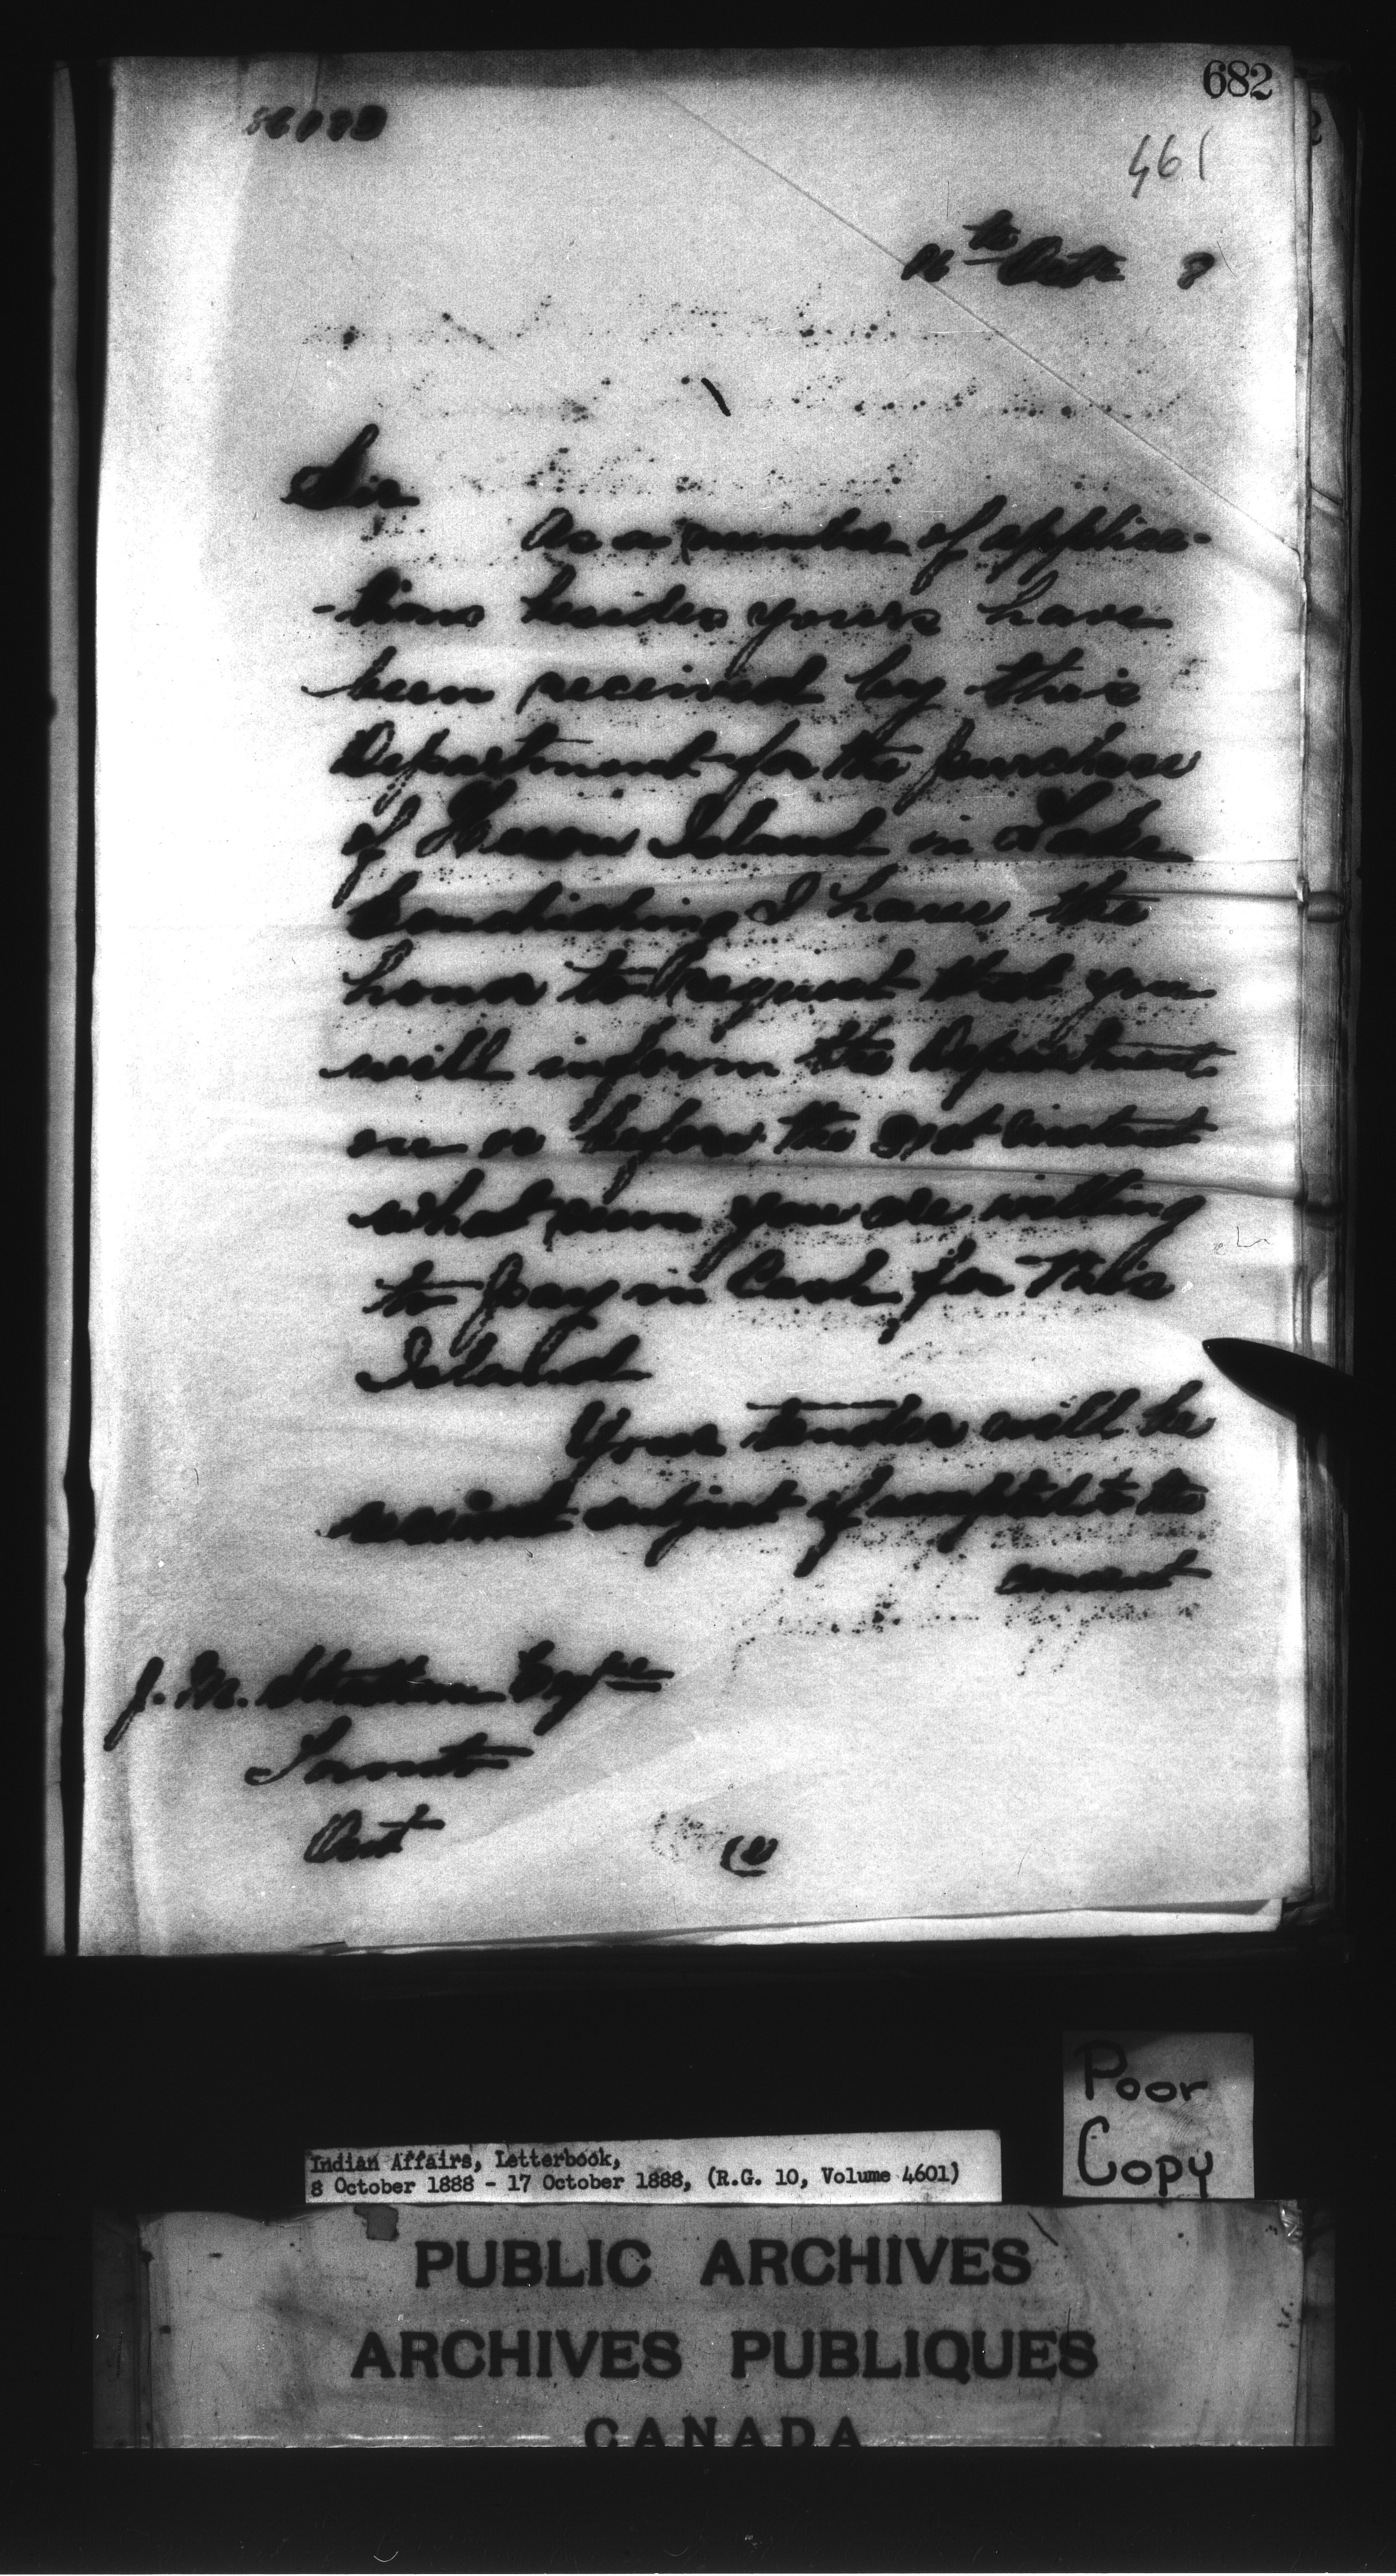 682
461
16th Octr 8
Sir
As a number of applica-
-tions besides yours have
been received by this
Department for the purchase
of Island in Lake
I have the
honor to request that you
will inform the Department
on or before the 31st instant
what sum you are willing
to pay in Cash for this
Island
Your tender will be
subject if accepted to the
consent
J. M. Esqre
Toronto
Ont
Poor
Copy
Indian Affairs, Letterbook,
8 October 1888 - 17 October 1888, (R.G. 10, Volume 4601)
PUBLIC ARCHIVES
ARCHIVES PUBLIQUES
CANADA